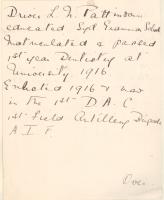 Driver L. N. Pattinson
educated Syd Grammar School
Matriculated & passed
1st year Dentistry at
University 1916
Enlisted 1916 & was
in the 1st D.A.C.
1st Field Artillery Brigade
A.I.F.
Over.